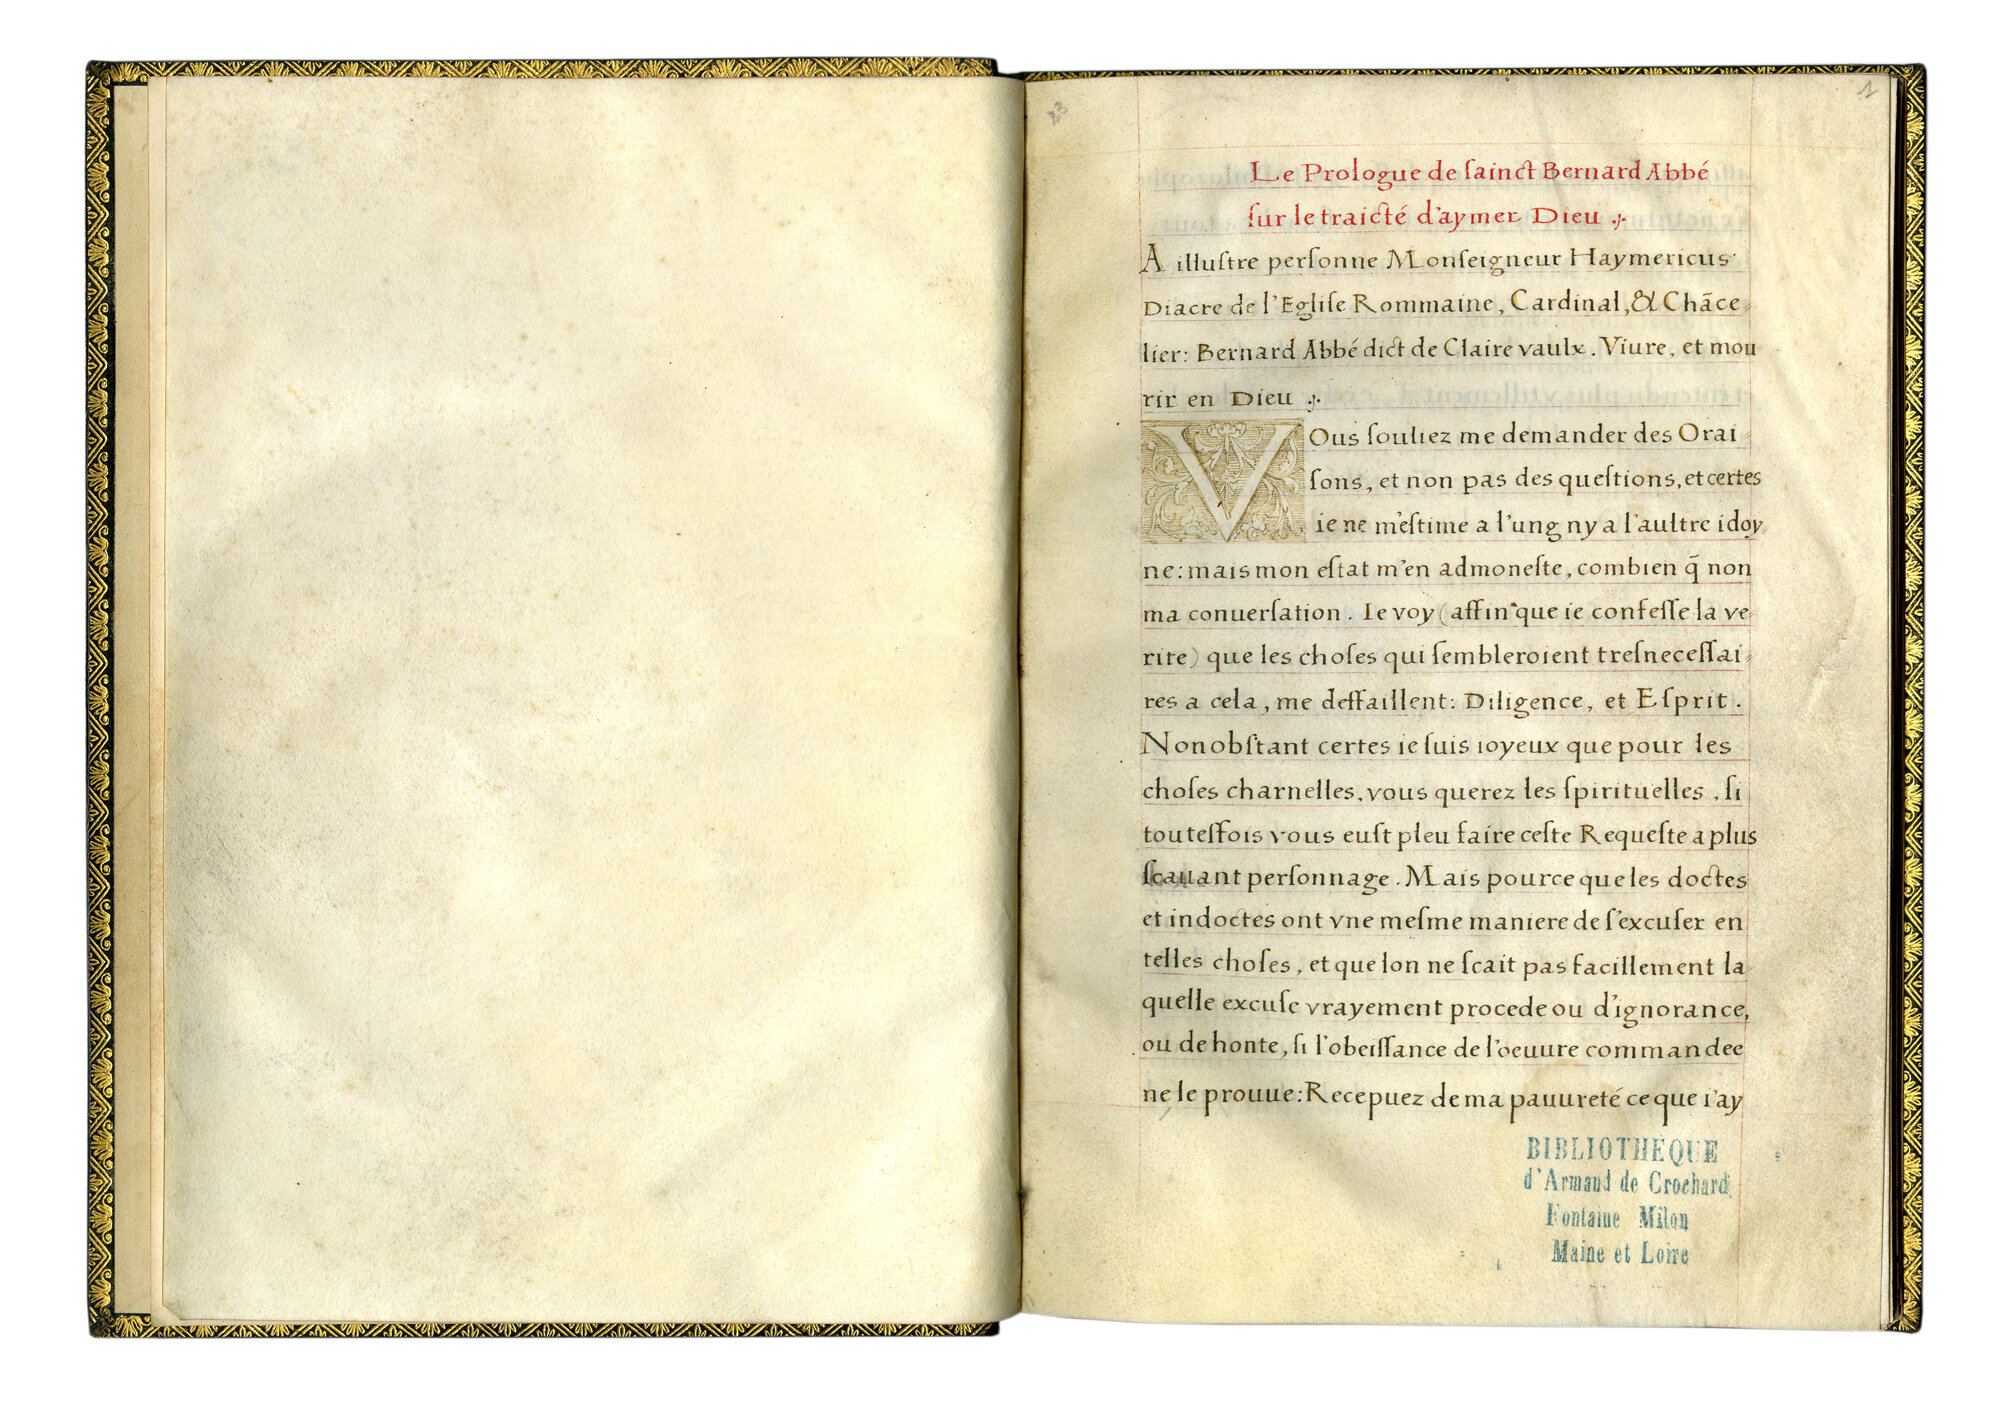 23
1
Le Prologue de ſainct Bernard Abbé
ſur le traicté d'aymer Dieu
A illuſtre perſonne Monſeigneur Haymericus
Diacre de l'Egliſe Rommaine, Cardinal, & Chāce-
lier: Bernard Abbé dict de Clairevaulx. Viure, et mou
rir en Dieu
VOus ſouliez me demander des Orai-
ſons, et non pas des queſtions, et certes
ie ne m'eſtime a l'ung ny a l'aultre idoy
ne: mais mon eſtat m'en admoneſte, combien q̃ non
ma conuerſation. Ie voy (affin que ie confeſſe la ve-
rite) que les choſes qui ſembleroient treſneceſſai-
res a cela, me deffaillent: Diligence, et Eſprit.
Nonobſtant certes ie ſuis ioyeux que pour les
choſes charnelles, vous querez les ſpirituelles, ſi
touteſfois vous euſt pleu faire ceſte Requeſte a plus
ſcauant perſonnage. Mais pource que les doctes
et indoctes ont vne meſme maniere de ſ'excuſer en
telles choſes, et que lon ne ſcait pas facillement la-
quelle excuſe vrayement procede ou d'ignorance,
ou de honte, ſi l'obeiſſance de l'oeuure commandee
ne le prouue: Recepuez de ma pauureté ce que i'ay
BIBLIOTHÉQUE
d'Armand de Crochard
Fontaine Milon
Maine et Loire